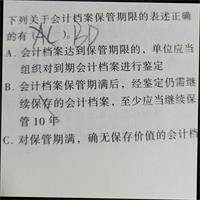 下列关于会计档案保管期限的表述正确
的有(AC)。BD
A. 会计档案达到保管期限的，单位应当
组织对到期会计档案进行鉴定
B. 会计档案保管期满后，经鉴定仍需继
续保存的会计档案，至少应当继续保
管 10 年
C. 对保管期满，确无保存价值的会计档